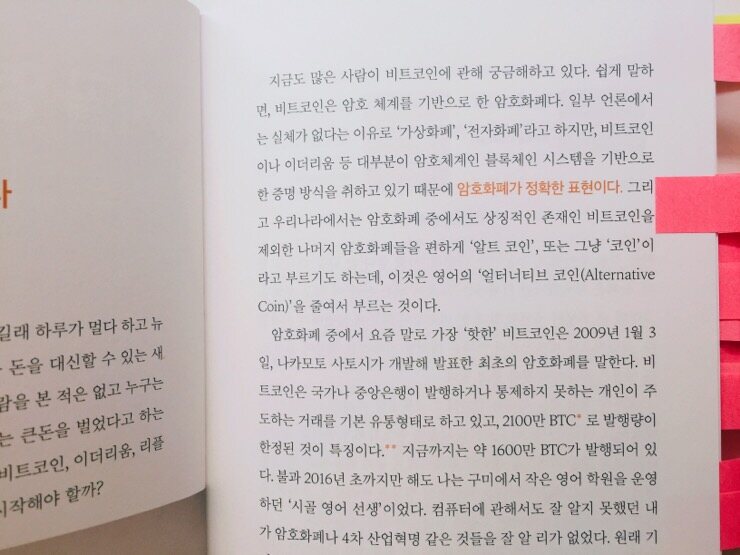 다
길래 하루가 멀다 하고 뉴
돈을 대신할 수 있는 새
람을 본 적은 없고 누구는
는 큰돈을 벌었다고 하는
비트코인, 이더리움, 리플
시작해야 할까?
지금도 많은 사람이 비트코인에 관해 궁금해하고 있다. 쉽게 말하
면, 비트코인은 암호 체계를 기반으로 한 암호화폐다. 일부 언론에서
는 실체가 없다는 이유로 ‘가상화폐’, ‘전자화폐’라고 하지만, 비트코인
이나 이더리움 등 대부분이 암호체계인 블록체인 시스템을 기반으로
한 증명 방식을 취하고 있기 때문에 암호화폐가 정확한 표현이다. 그리
고 우리나라에서는 암호화폐 중에서도 상징적인 존재인 비트코인을
제외한 나머지 암호화폐들을 편하게 ‘알트 코인’, 또는 그냥 ‘코인’이
라고 부르기도 하는데, 이것은 영어의 ‘얼터너티브 코인(Alternative
Coin)’을 줄여서 부르는 것이다.
암호화폐 중에서 요즘 말로 가장 ‘핫한’ 비트코인은 2009년 1월 3
일, 나카모토 사토시가 개발해 발표한 최초의 암호화폐를 말한다. 비
트코인은 국가나 중앙은행이 발행하거나 통제하지 못하는 개인이 주
도하는 거래를 기본 유통형태로 하고 있고, 2100만 BTC* 로 발행량이
한정된 것이 특징이다.** 지금까지는 약 1600만 BTC가 발행되어 있
다. 불과 2016년 초까지만 해도 나는 구미에서 작은 영어 학원을 운영
하던 ‘시골 영어 선생’이었다. 컴퓨터에 관해서도 잘 알지 못했던 내
가 암호화폐나 4차 산업혁명 같은 것들을 잘 알 리가 없었다. 원래 기